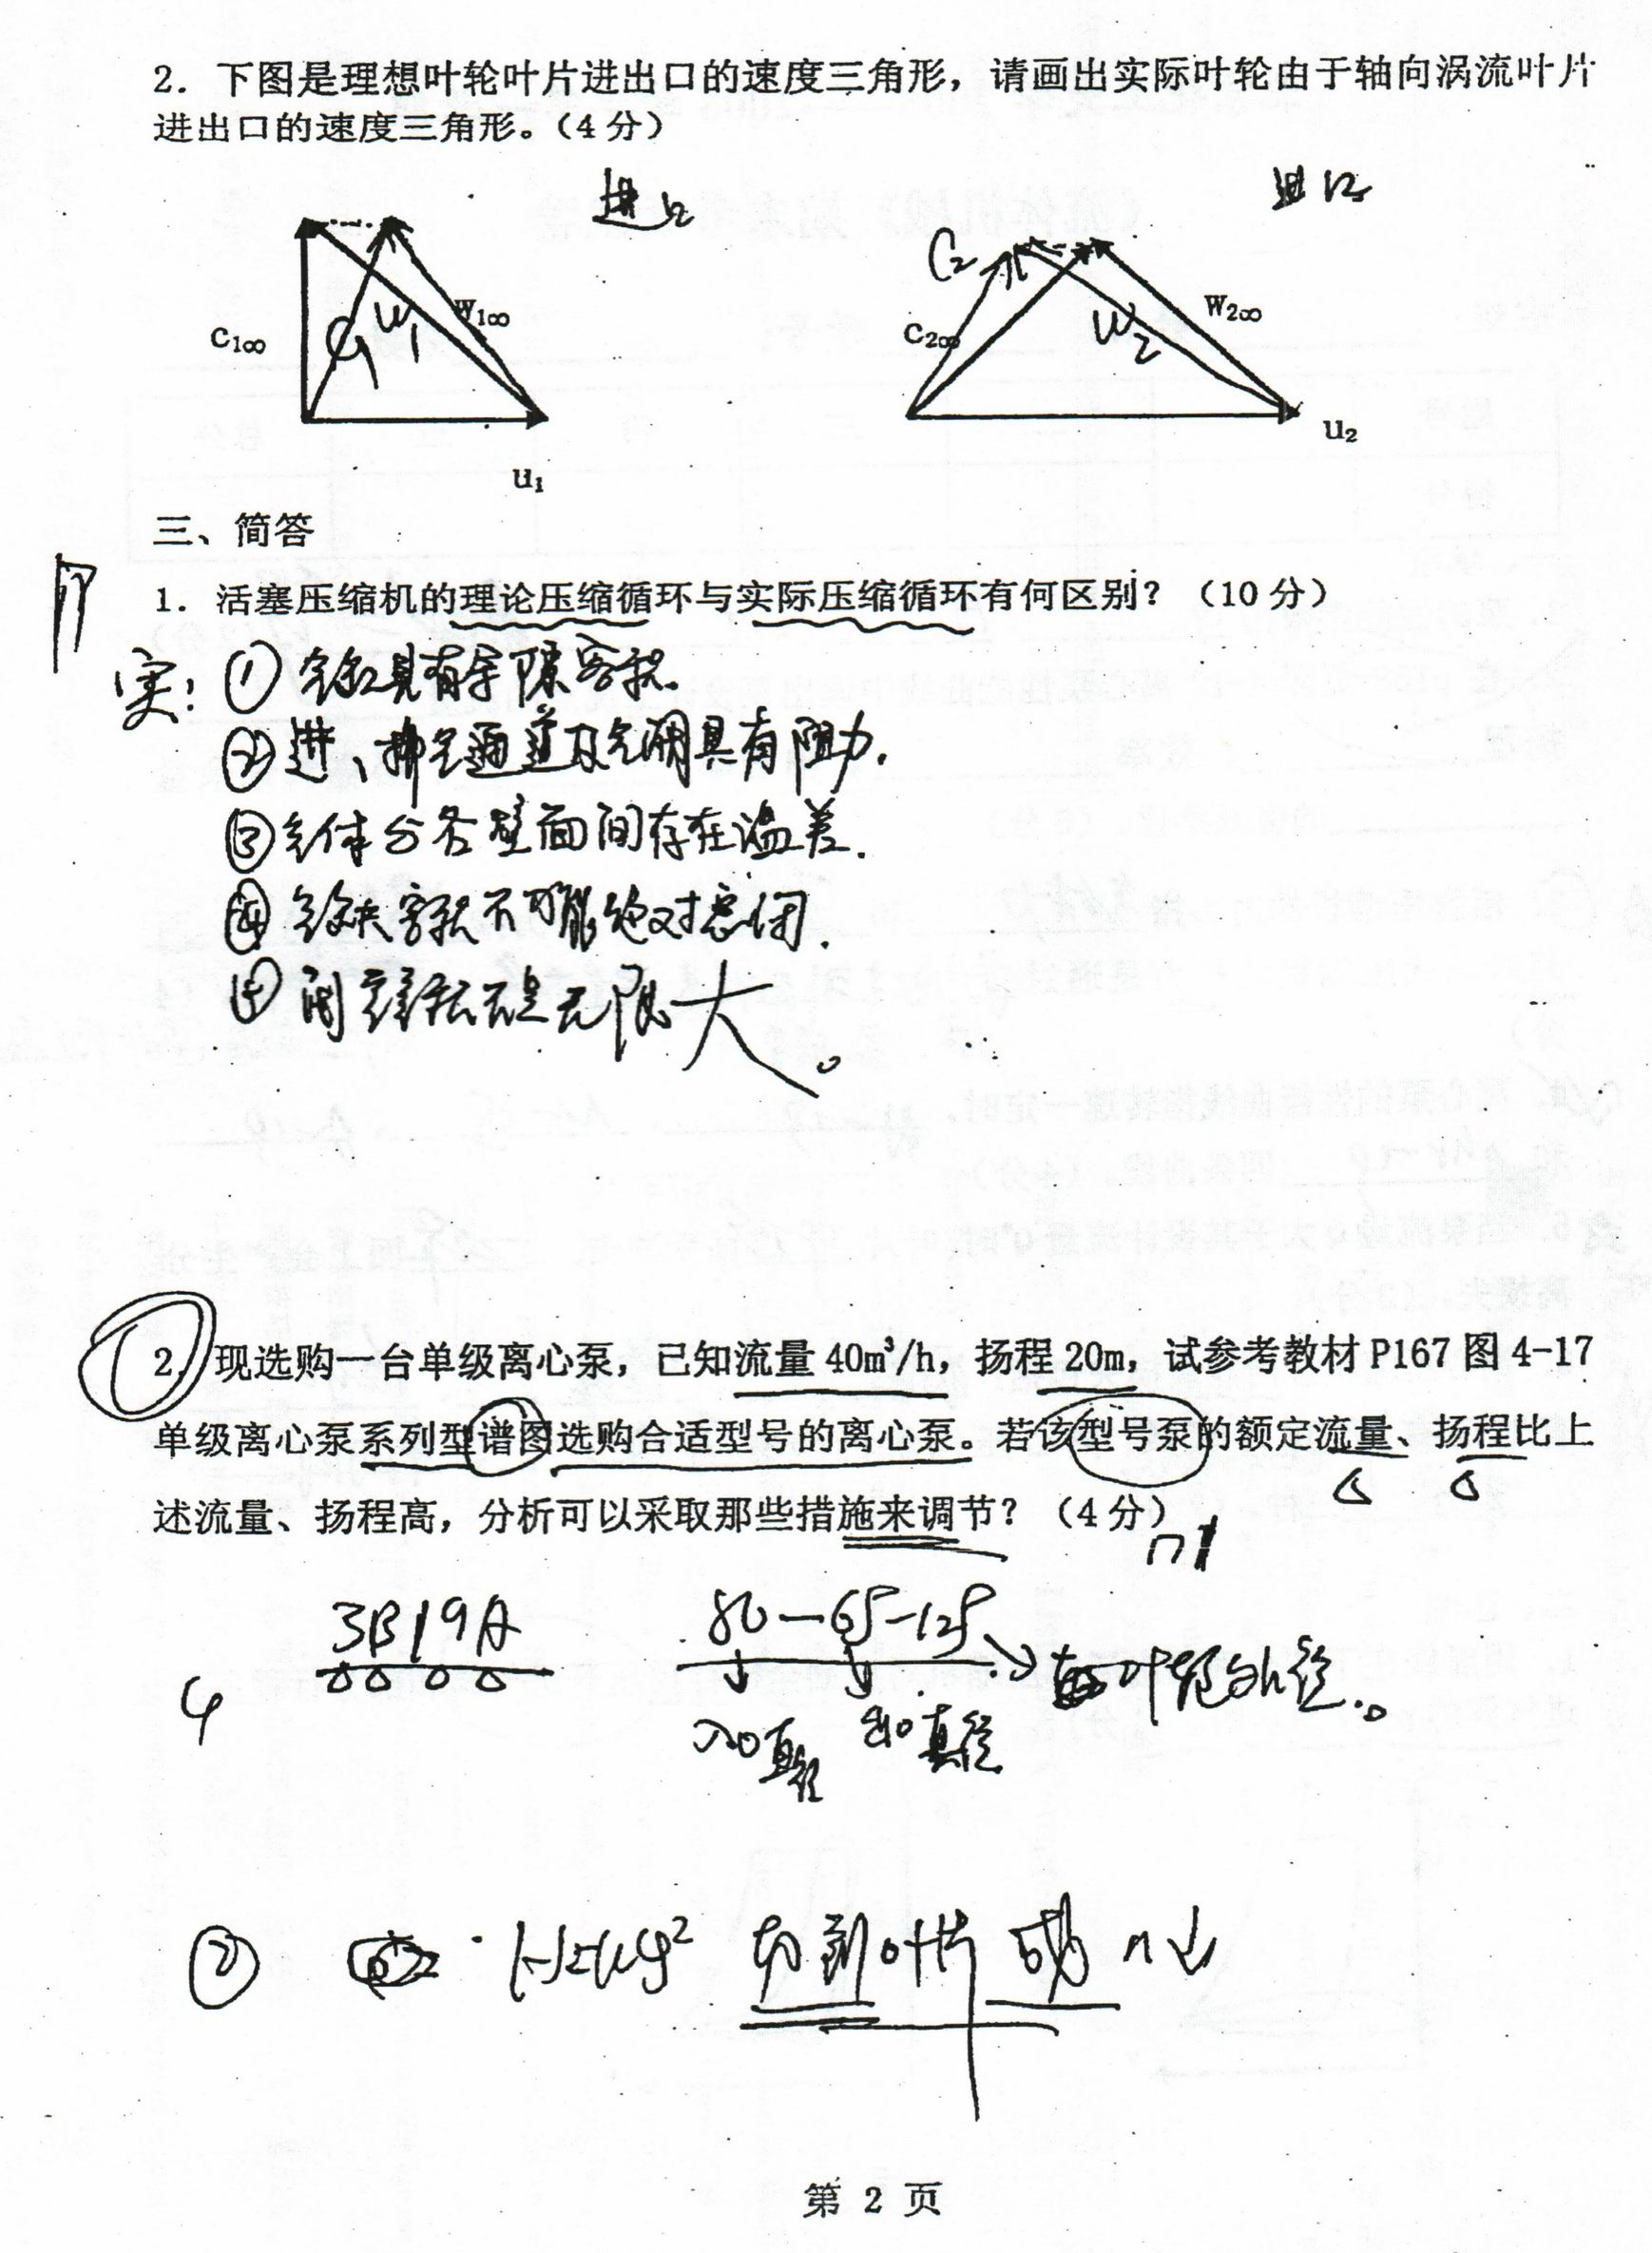 2. 下图是理想叶轮叶片进出口的速度三角形，请画出实际叶轮由于轴向涡流叶片
进出口的速度三角形。（4 分）
进口
C₂
c₁∞
C₁
W₁
w₁∞
c₂∞
W₂
w₂∞
u₁
u₂
三、简答
1. 活塞压缩机的理论压缩循环与实际压缩循环有何区别？（10 分）
实：① 气缸具有余隙容积.
② 进、排气通道及气阀具有阻力.
③ 气体与各壁面间存在温差.
④ 气缸容积不可能绝对密闭.
无限大。
2. 现选购一台单级离心泵，已知流量 40m³/h，扬程 20m，试参考教材 P167 图 4-17
单级离心泵系列型谱图选购合适型号的离心泵。若该型号泵的额定流量、扬程比上
述流量、扬程高，分析可以采取那些措施来调节？（4 分）
3B19A
80-65-125
叶轮外径.
入口直径
出口直径
②
切割叶片 或 n↓
第 2 页